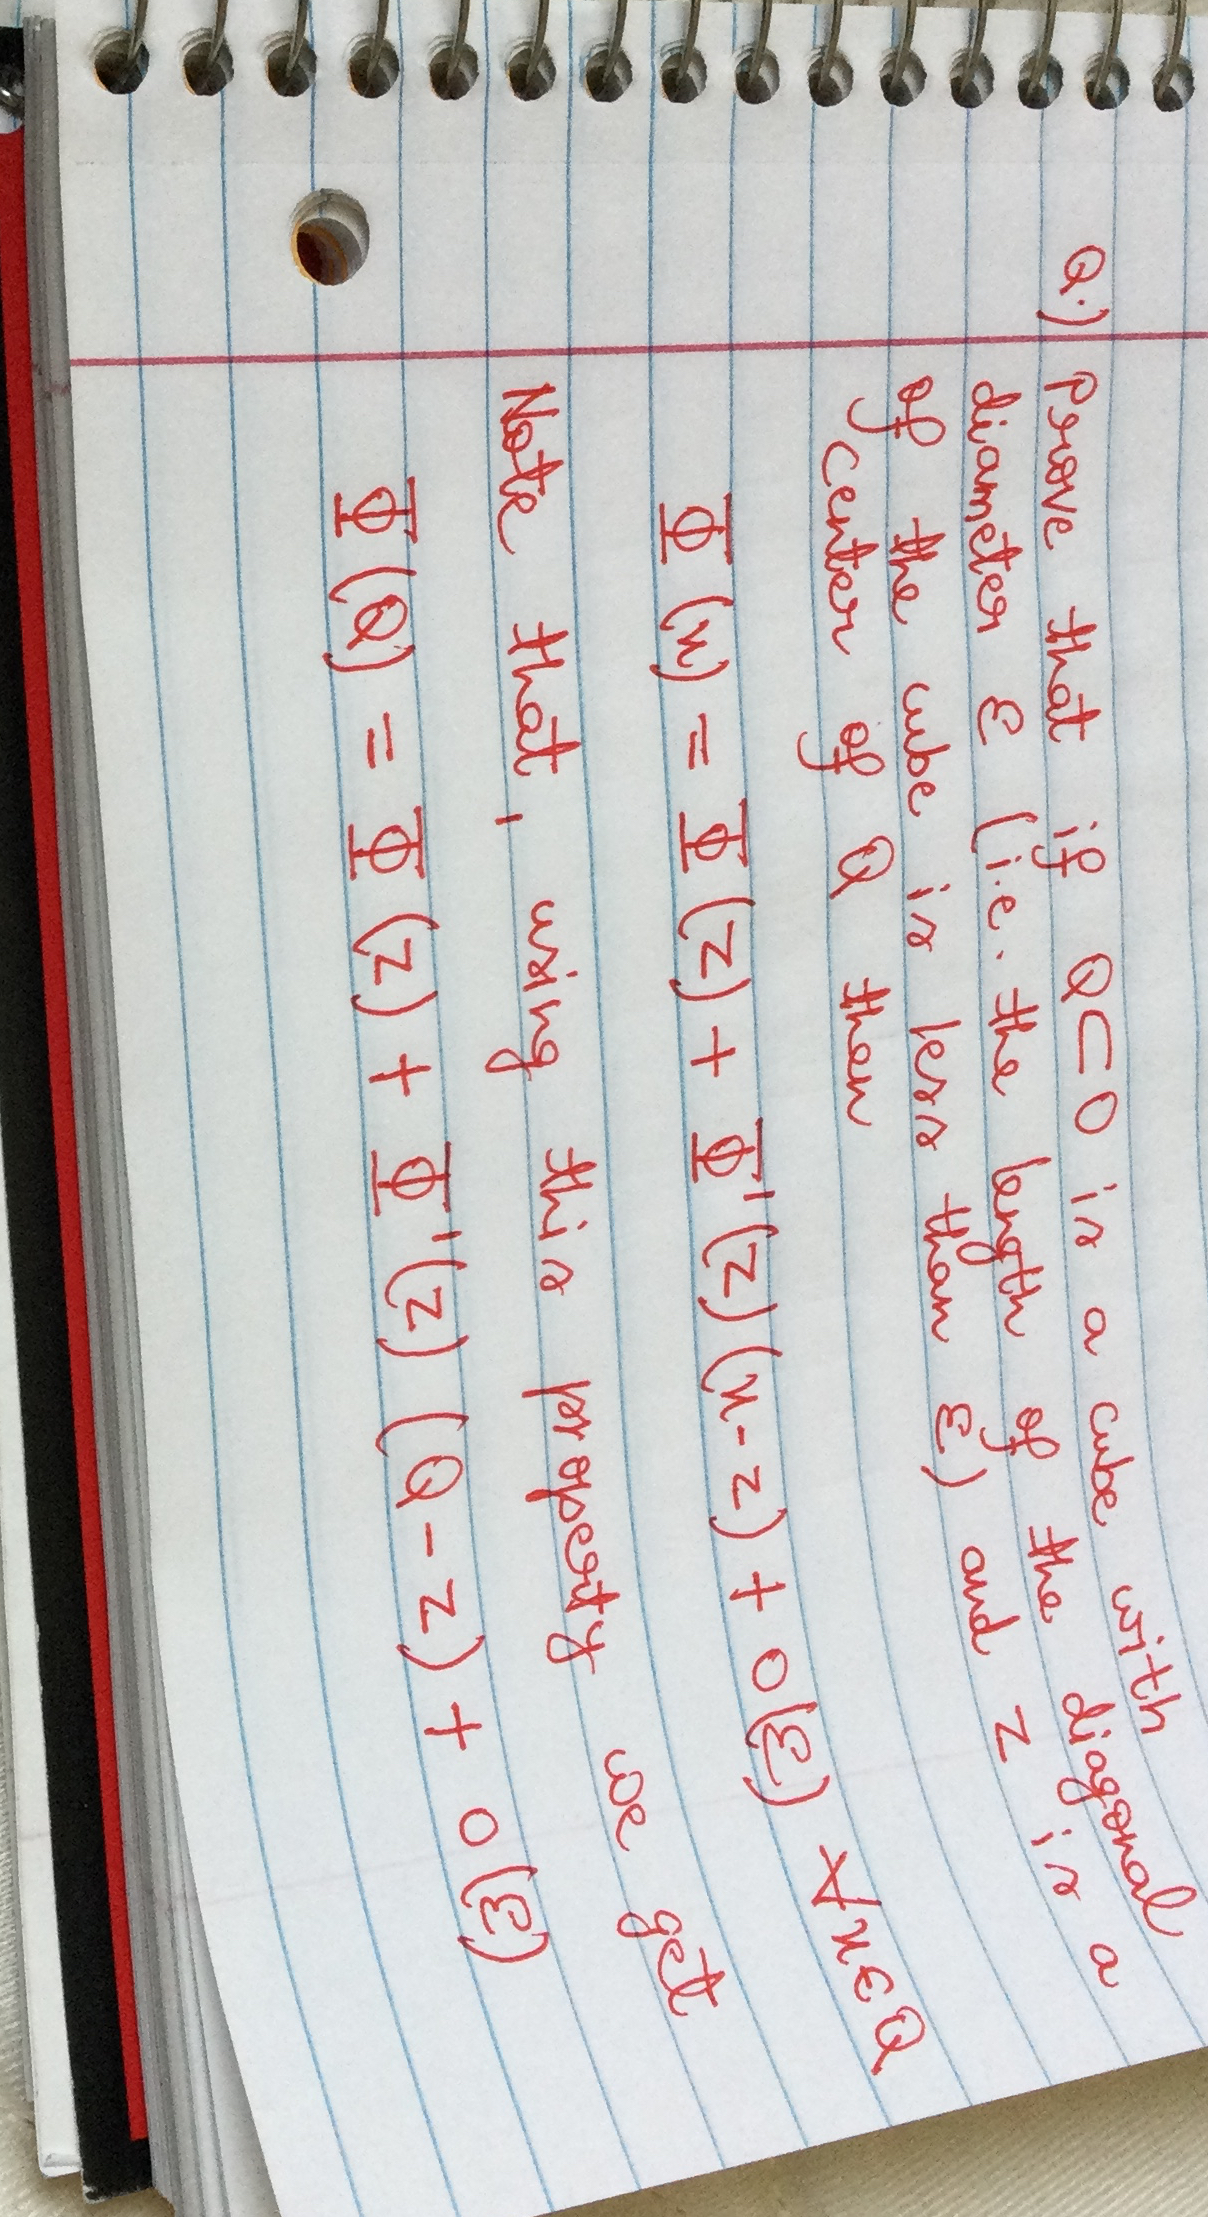 Q.) Prove that if Q⊂O is a cube with
diameter ε (i.e. the length of the diagonal
of the cube is less than ε) and z is a
center of Q then
Φ(x) = Φ(z) + Φ'(z)(x-z) + o(ε) ∀x∈Q
Note that, using this property we get
Φ(Q) = Φ(z) + Φ'(z) (Q-z) + o(ε)